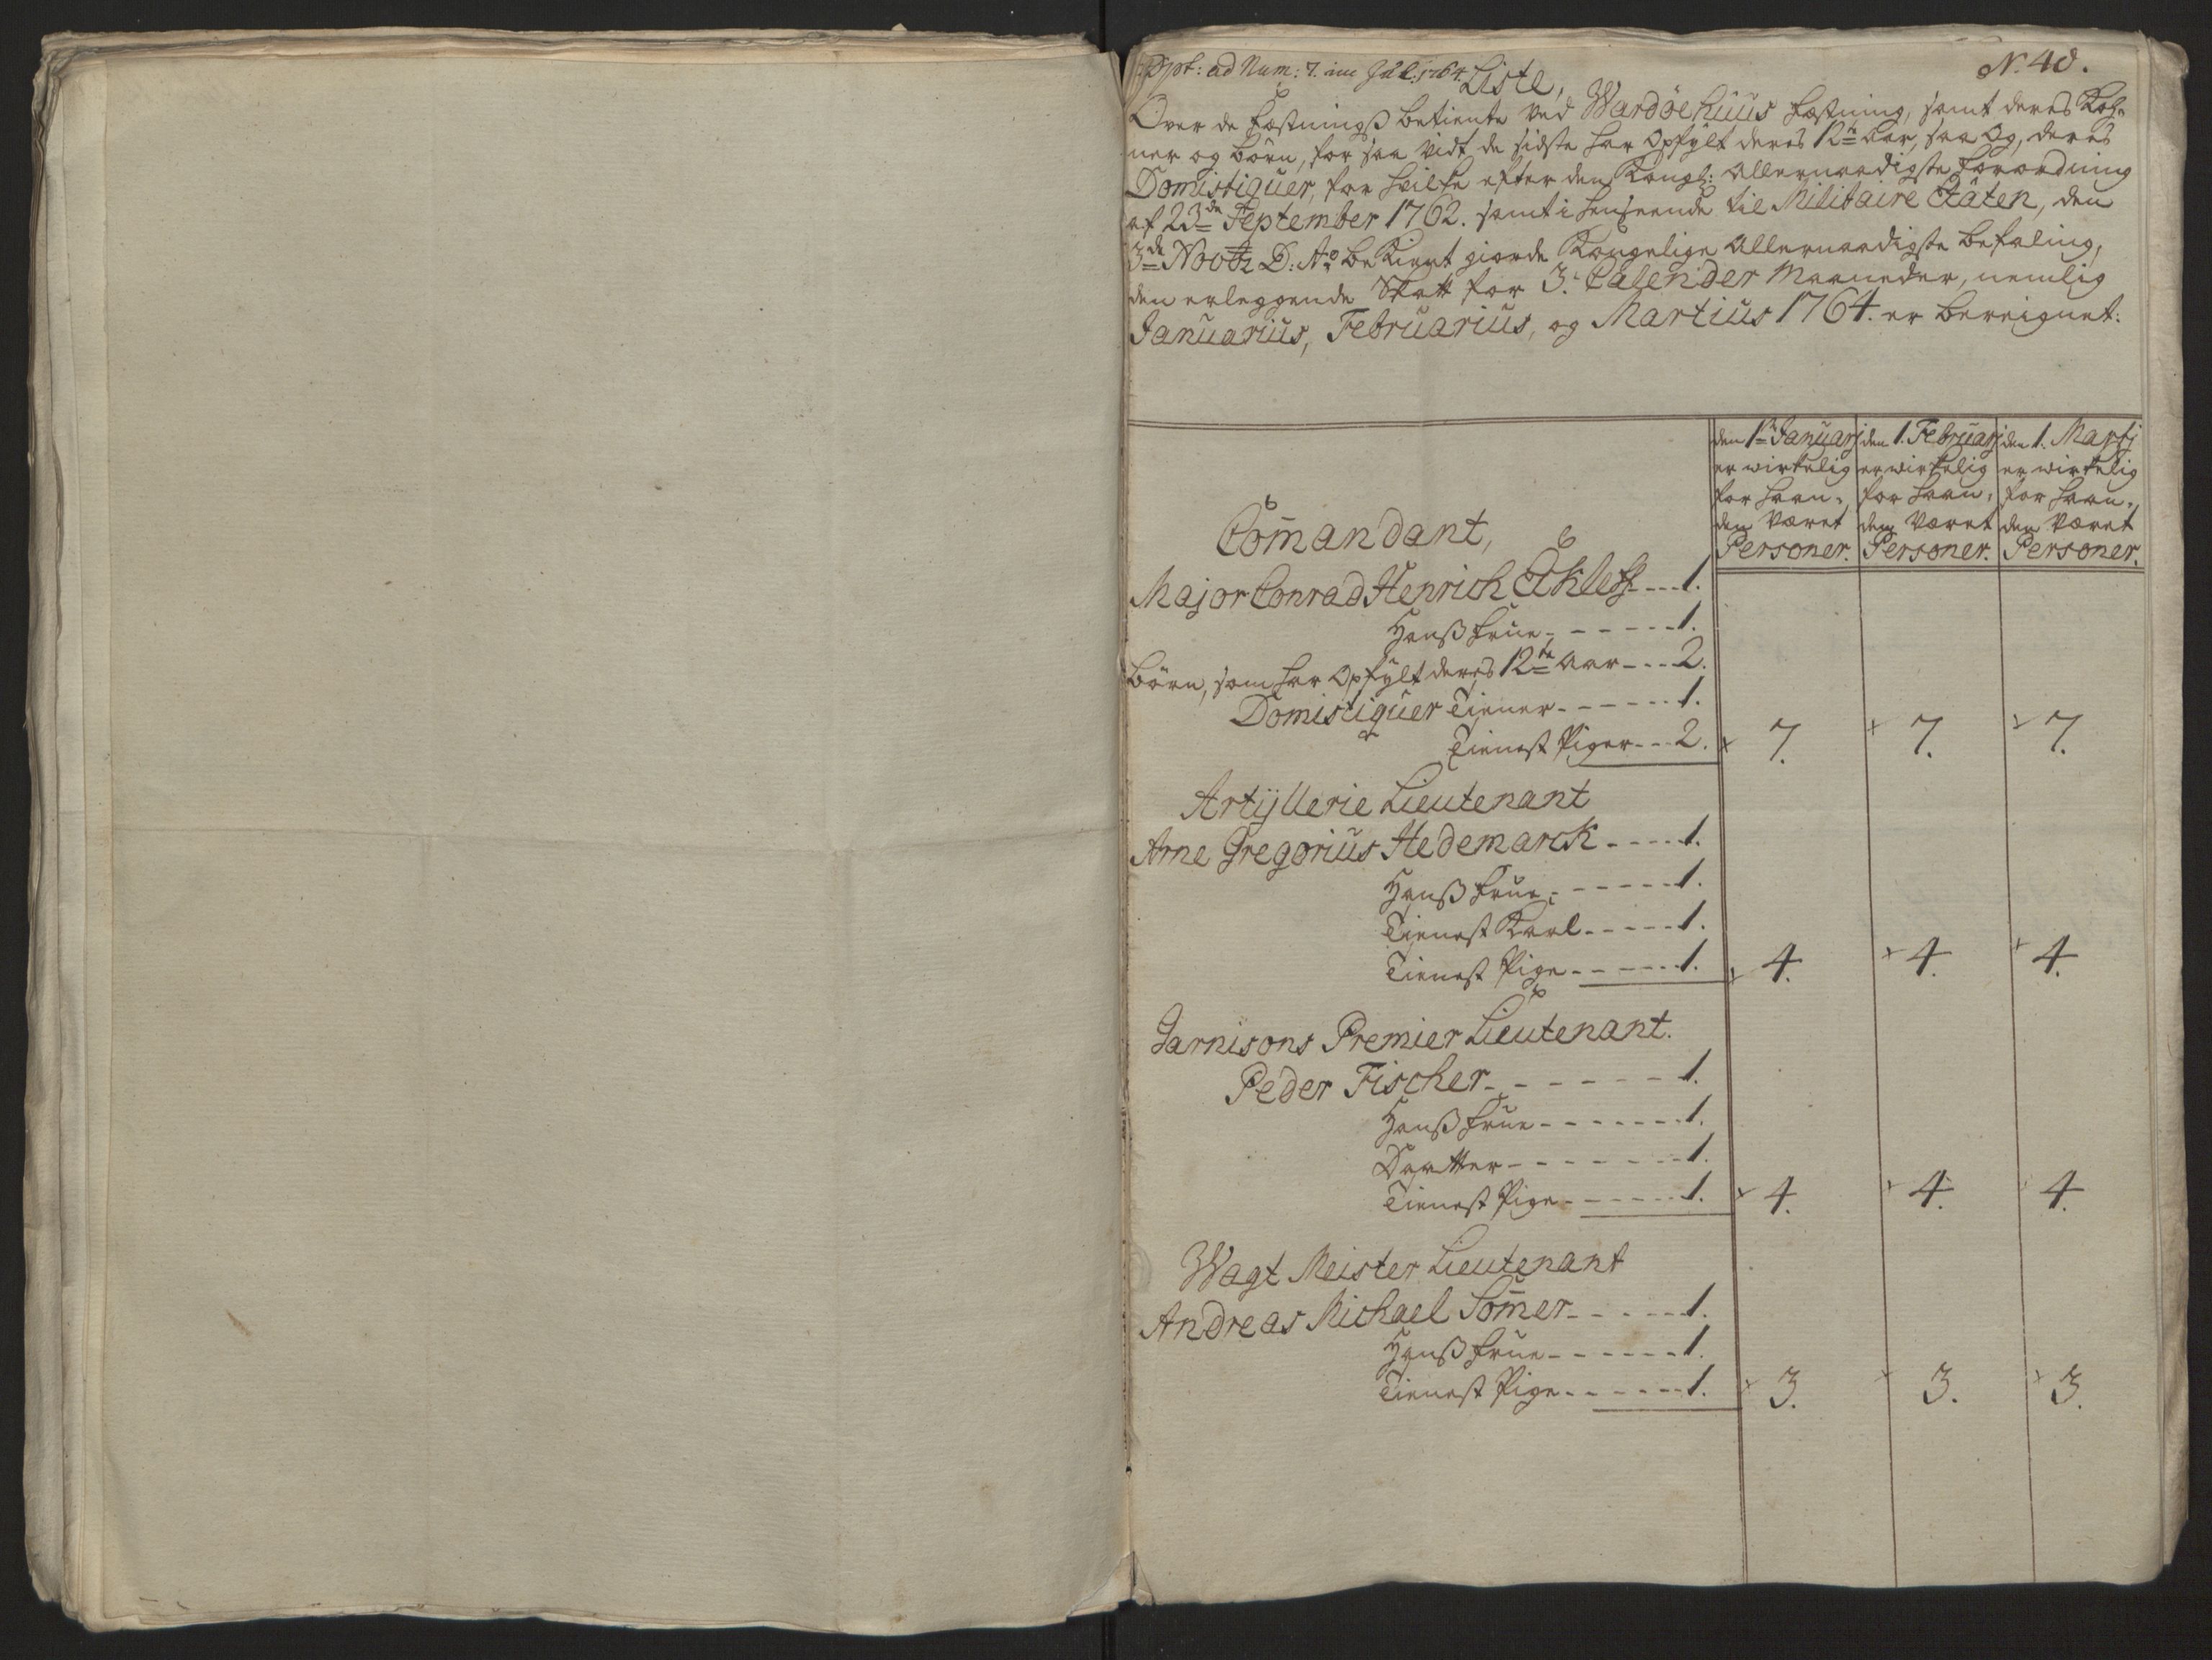 ad Num: 7. Jul: 1764. N. 40.
Liste,
Over de Fæstningß betiente ved Wardöehuus Fæstning, samt deres Koh-
ner og børn, for saa vidt de sidste har Opfylt deres 12te Aar, saa og, deres
Domistiquer, for hvilke efter den Kongl: Allernaadigste Forordning
af 23de September 1762. samt i henseende til Militaire Etäten, den
3de Novbr D: Ao bekient giorde Kongelige Allernaadigste befaling,
den erleggende Skatt for 3. Calender Maaneder, nemlig
Januarius, Februarius, og Martius 1764. er bereignet:
den 1te Januarj den 1. Februarj den 1. Martj
er wirkelig er wirkelig er wirkelig
for haan- for haan- for haan-
den været den været den været
Personer. Personer. Personer.
Com̄andant,
Major Conrad Henrich Ekleff --- 1.
Hanß frue ----- 1.
Börn, som har Opfylt deres 12te Aar --- 2.
Domistiquer Tiener ------ 1.
Tienest Piger --- 2. 7. 7. 7.
Artijllerie Lieutenant
Arne Gregorius Hedemarck ---- 1.
Hanß frue ----- 1.
Tienest Karl ----- 1.
Tienest Pige ----- 1. 4. 4. 4.
Garnisons Premier Lieutenant.
Peder Fischer ------ 1.
Hanß frue ------ 1.
Daatter ------ 1.
Tienest Pige ------ 1. 4. 4. 4.
Wagt Meister Lieutenant
Andreas Michael Som̄er ----- 1.
Hanß frue ------ 1.
Tienest Pige ------ 1. 3. 3. 3.